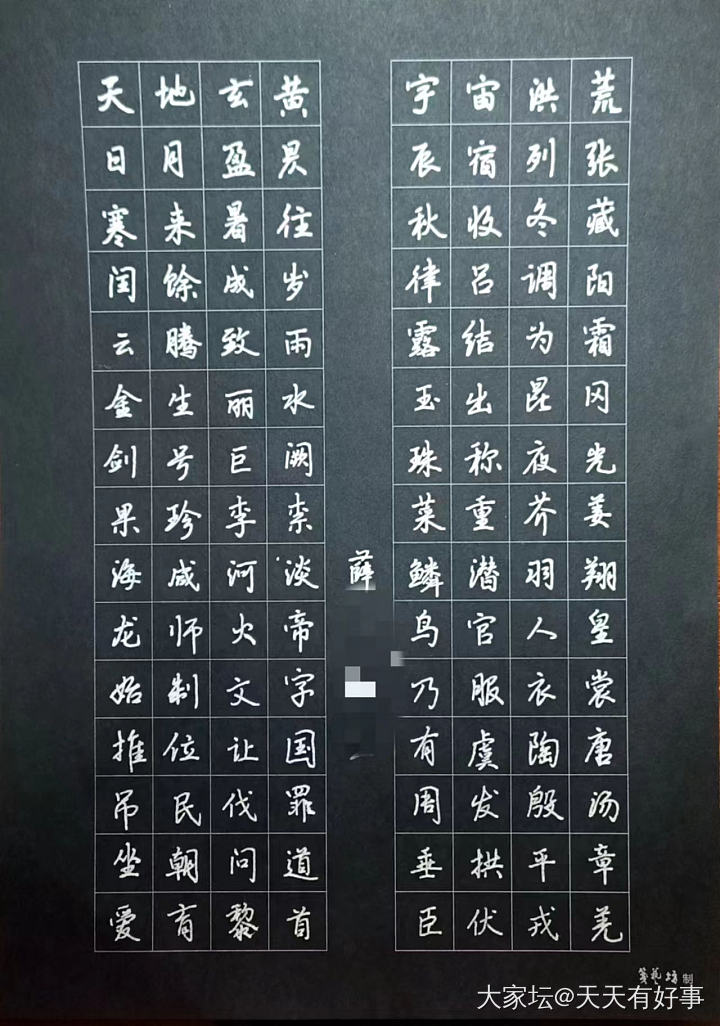 天地玄黄 宇宙洪荒
日月盈昃 辰宿列张
寒来暑往 秋收冬藏
闰馀成岁 律吕调阳
云腾致雨 露结为霜
金生丽水 玉出昆冈
剑号巨阙 珠称夜光
果珍李柰 菜重芥姜
海咸河淡 鳞潜羽翔
龙师火帝 鸟官人皇
始制文字 乃服衣裳
推位让国 有虞陶唐
吊民伐罪 周发殷汤
坐朝问道 垂拱平章
爱育黎首 臣伏戎羌
薛
笺艺坊制
大家坛@天天有好事